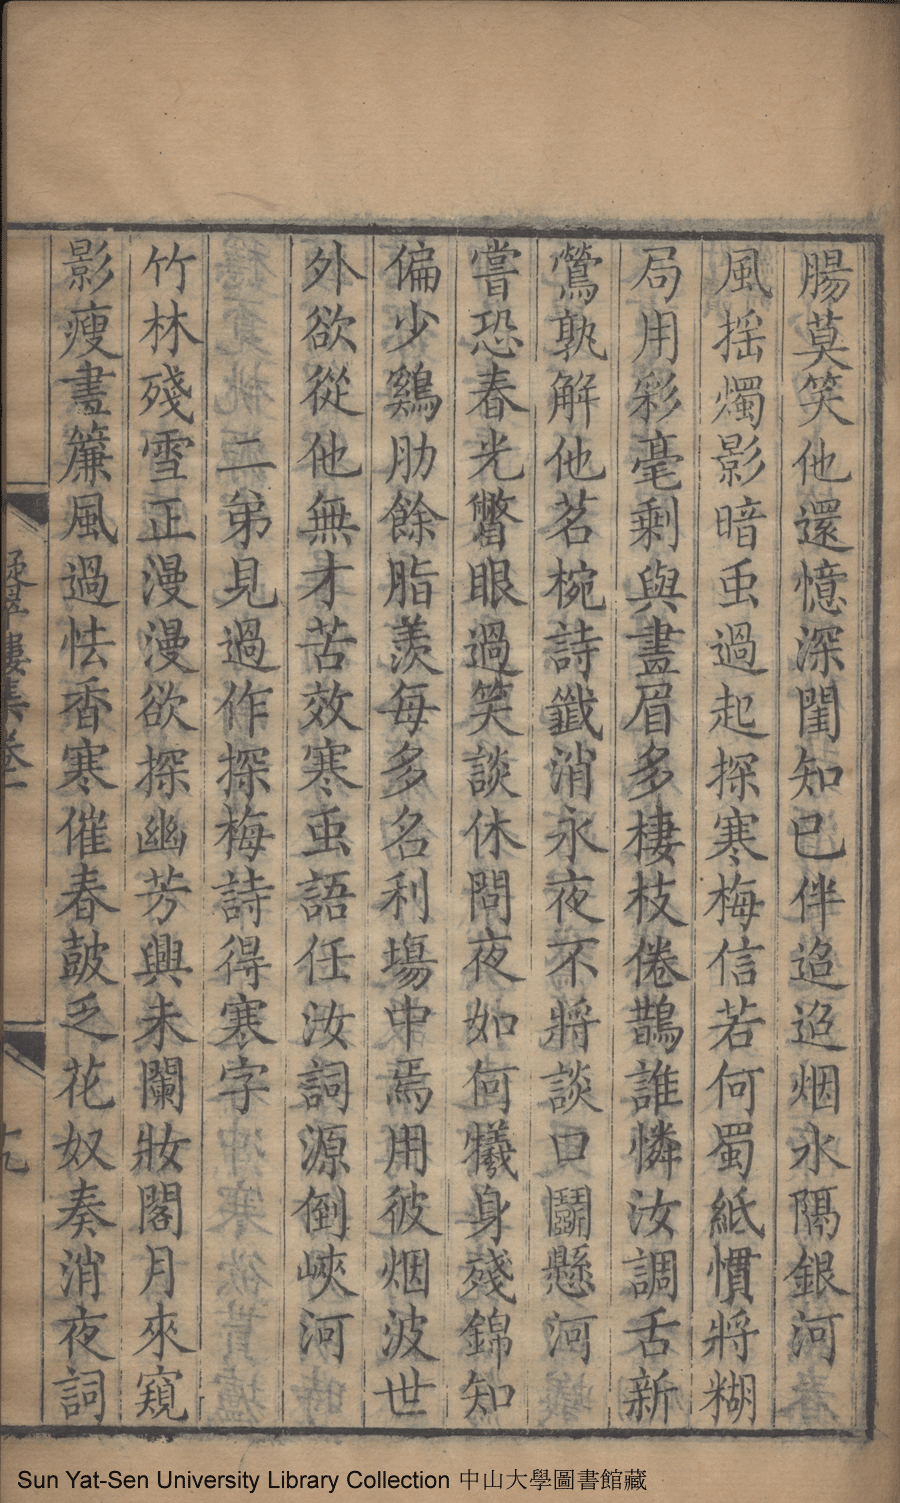 腸莫笑他還憶深閨知已伴迢迢烟水隔銀河
風揺燭影暗虫過起探寒梅信若何蜀紙慣將糊
局用彩毫剩與畫眉多棲枝倦鵲誰憐汝調舌新
鶯孰解他茗椀詩籤消永夜不將談口鬬懸河
嘗恐春光瞥眼過笑談休問夜如何犧身殘錦知
偏少鷄肋餘脂羨每多名利塲中焉用彼烟波世
外欲從他無才苦效寒虫語任汝詞源倒峽河
二弟見過作探梅詩得寒字
竹林殘雪正漫漫欲探幽芳興未闌妝閣月來窺
影瘦晝簾風過怯香寒催春皷乏花奴奏消夜詞
樓集卷一
九
Sun Yat-Sen University Library Collection 中山大學圖書館藏